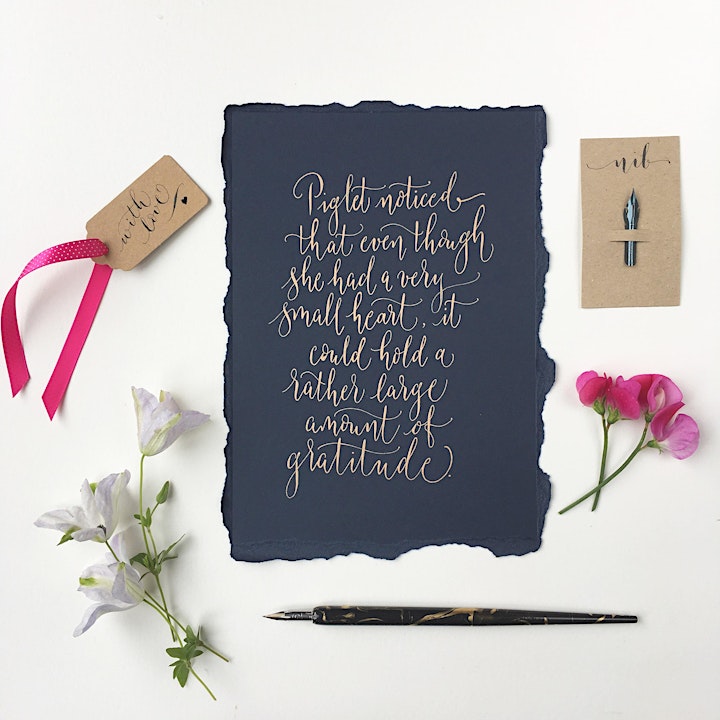 with
love
nib
Piglet noticed
that even though
she had a very
small heart, it
could hold a
rather large
amount of
gratitude.